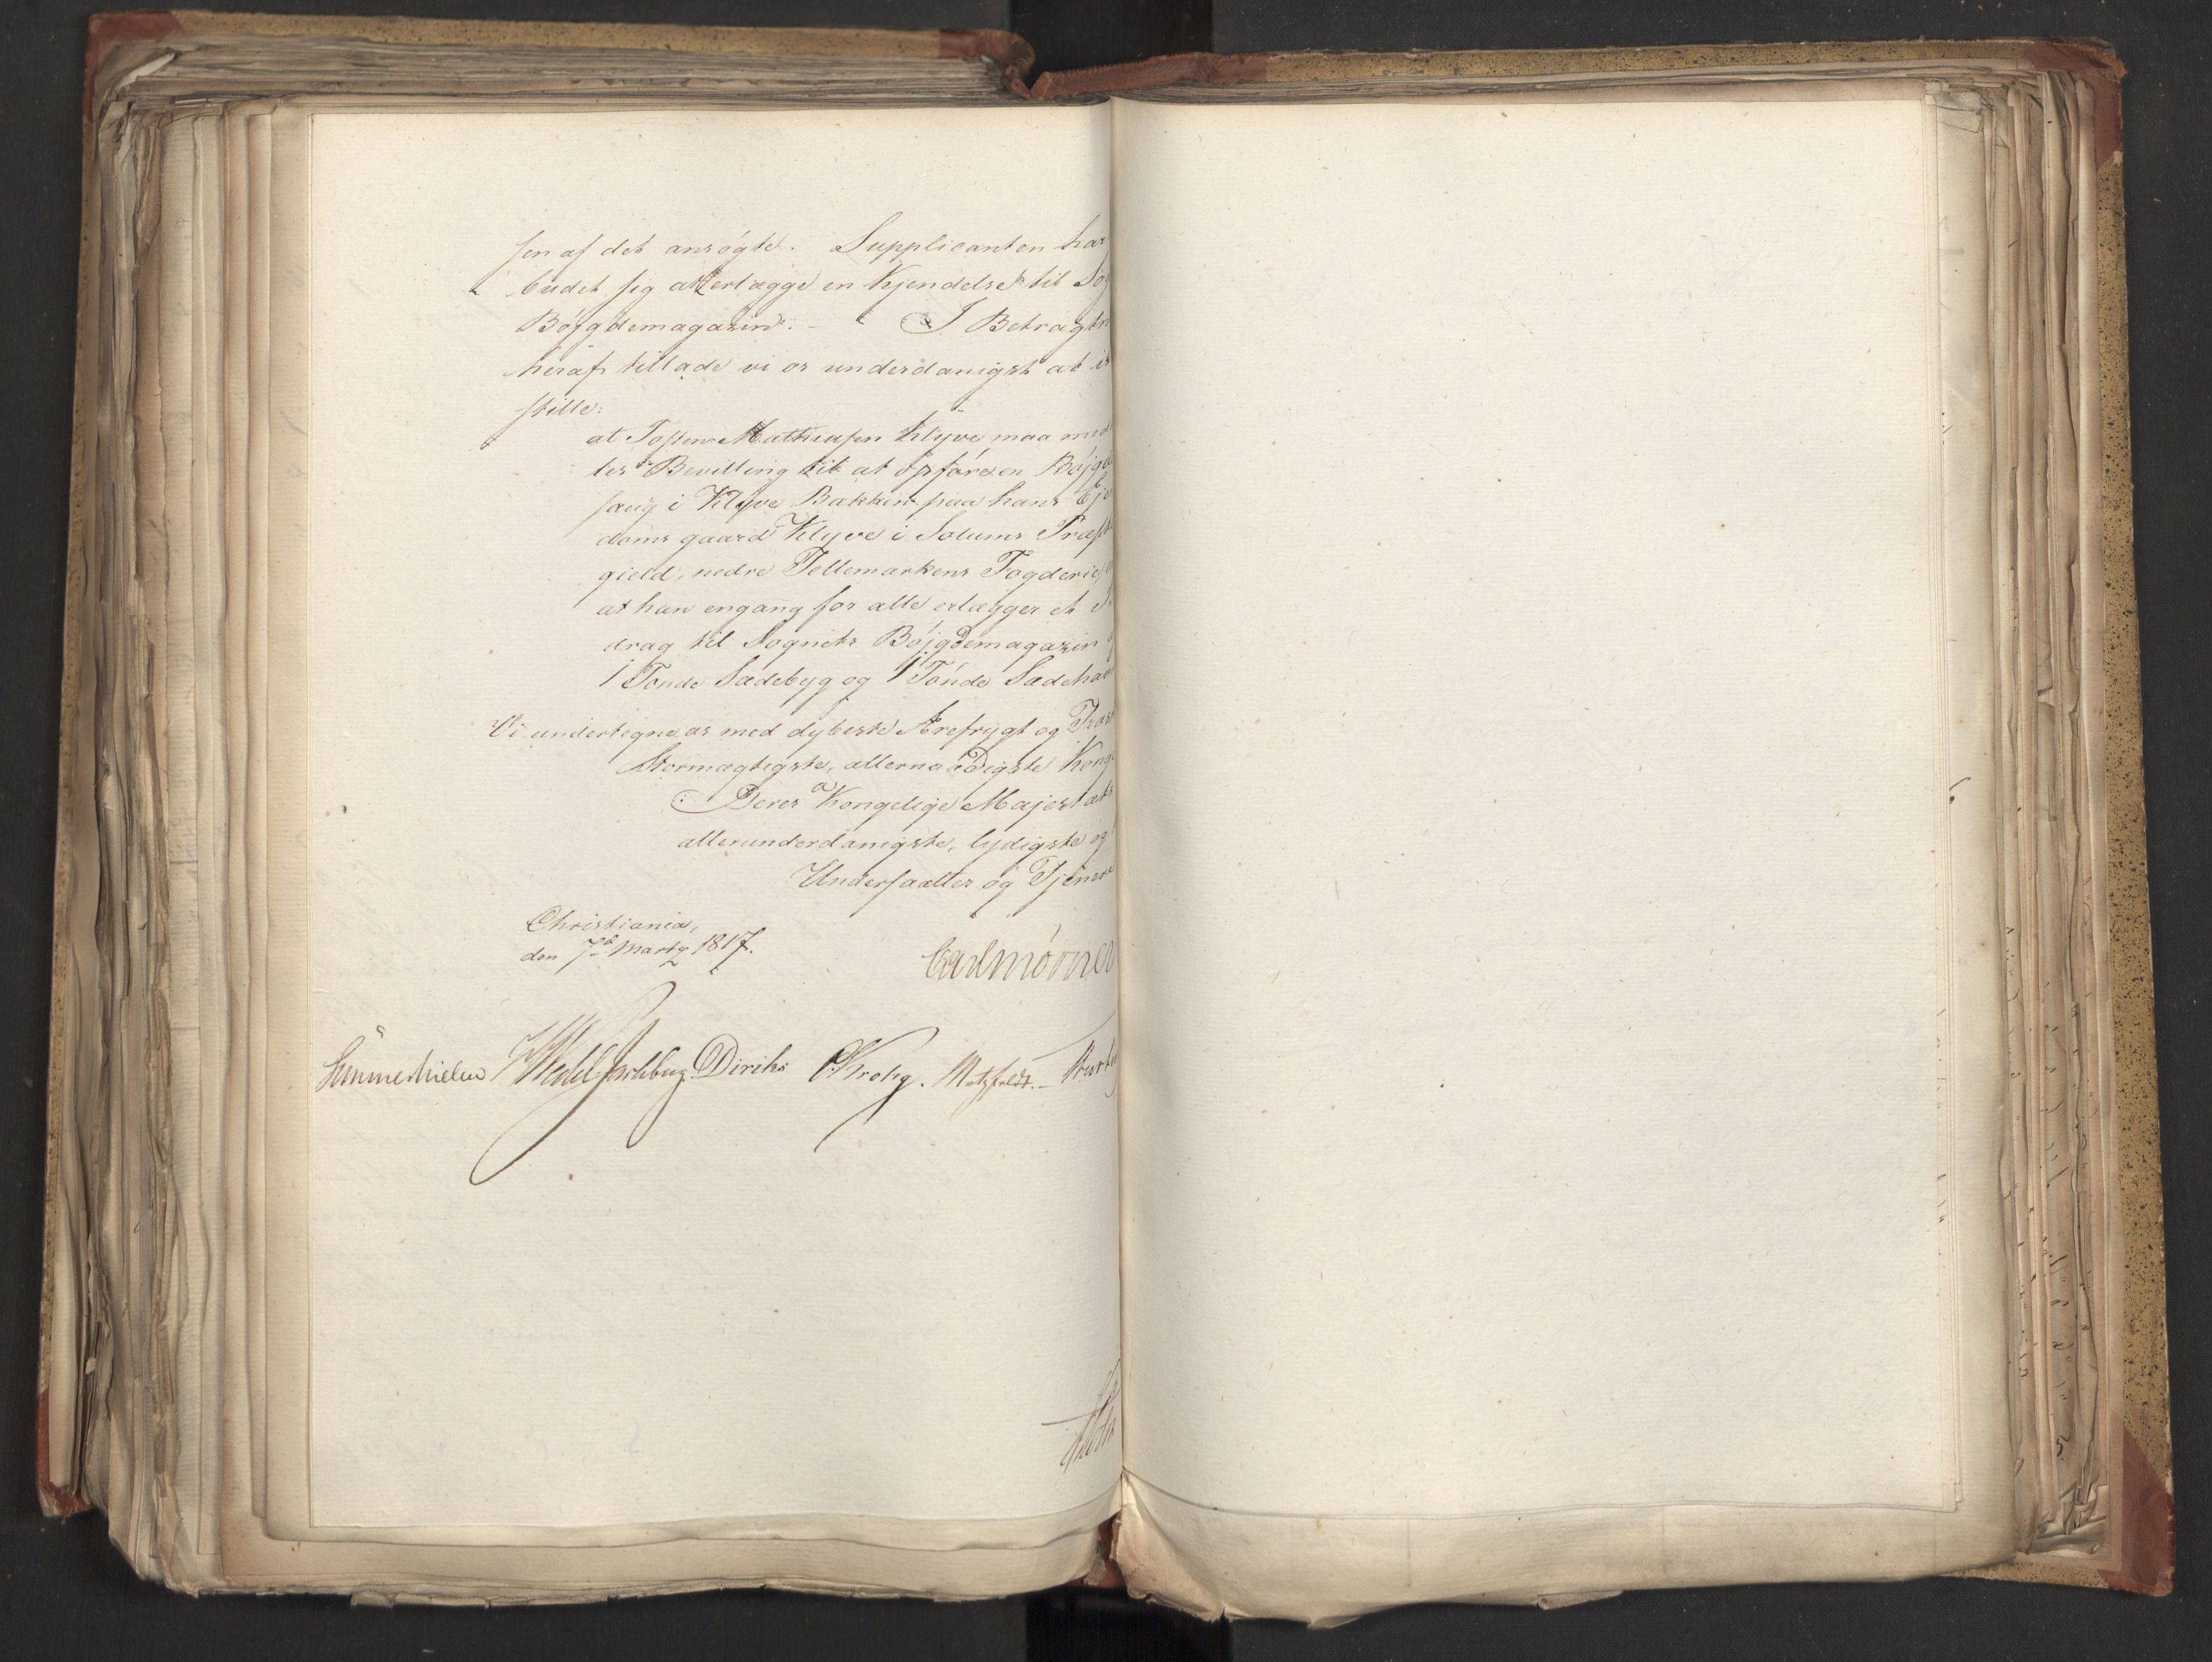 sen af det ansøgte. Supplicanten har
budet sig at erlægge en Kjendelse til So
Bøjgdemagazin. - I Betragtn
heraf tillade vi os underdanigst at i
stille:
at Tosten Mathiasen Klyve maa med
les Bevilling til at opføre en Bøjgd
saug i Klyve Bakken paa hans Eje
doms gaard Klyve i Solums Præst
gield, nedre Tellemarkens Fogderie,
at han engang for alle erlægger et B
drag til Sognets Bøjgdemagazin
1 Tønde Sædebyg og 1 Tønde Sædehav
Vi undertegne os med dybeste Ærefrygt og Trosk
Stormægtigste, allernaadigste Kong
Deres Kongelige Majestæts
allerunderdanigste, lydigste og
Undersaatter og Tjenere
Christiania,
den 7de Marty 1817.
Carl Mörner
Sommerhielm Wedel Jarlsberg Diriks CKrohg. Motzfeldt. -